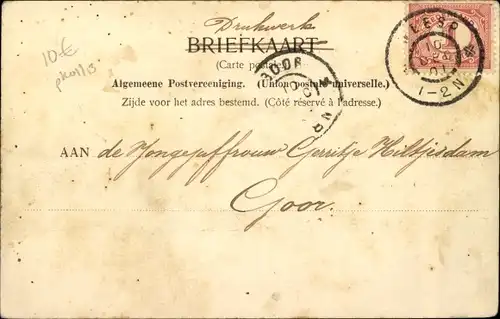 Drukwerk
10.€
BRIEFKAART
(Carte postale)
Algemeene Postvereeniging. (Union postale universelle.)
Zijde voor het adres bestemd. (Côté réservé à l'adresse.)
WEESP
1-2N
GOOR
AAN de Jongejuffrouw Gerritje Hiltjesdam
Goor.